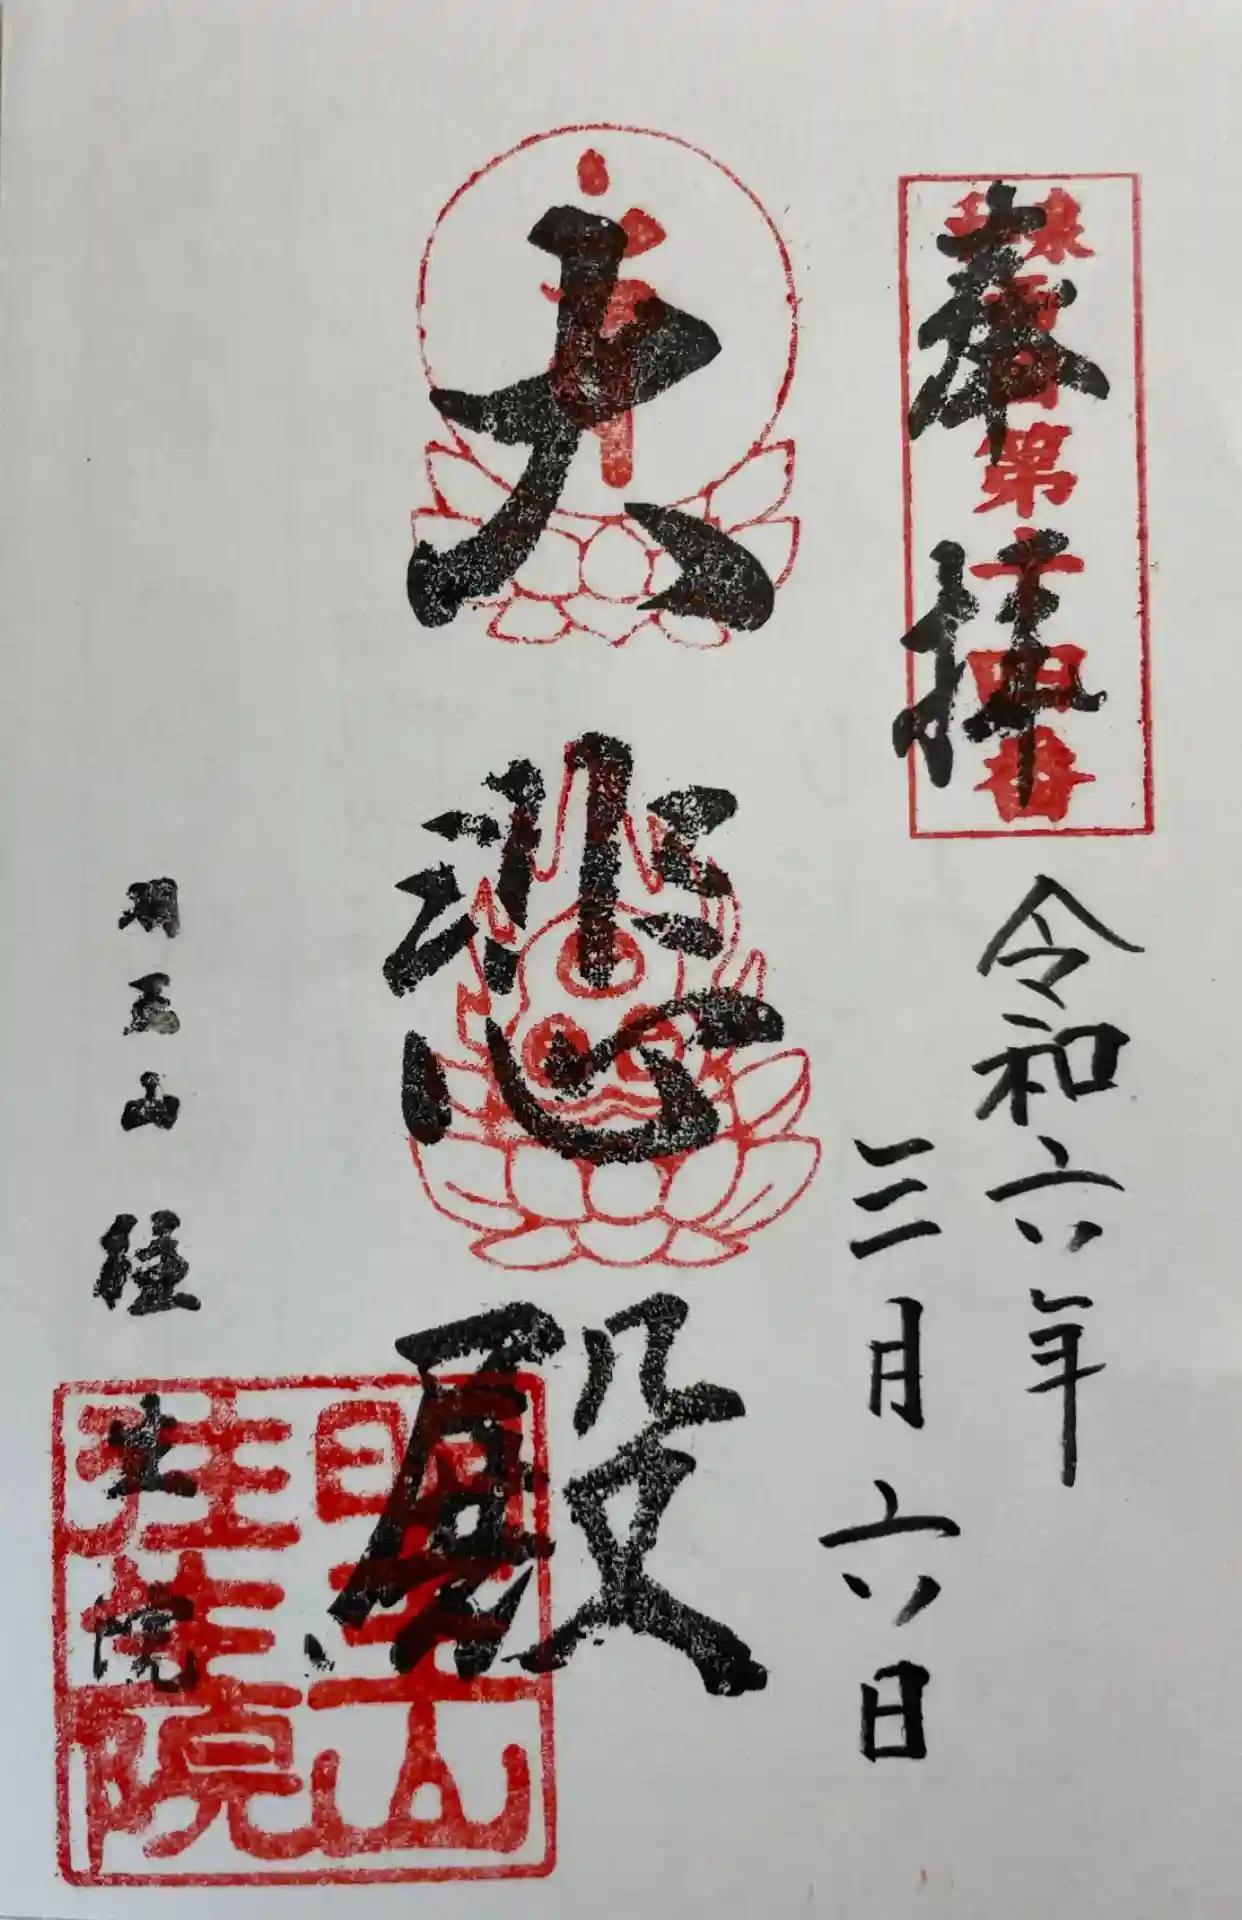 奉拝
第十四番
令和六年
三月六日
大悲殿
明王山
往生院
明王山
往生院